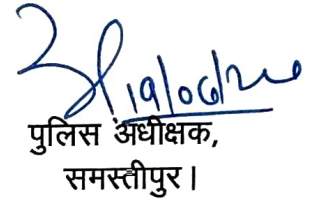 19/06/20
पुलिस अधीक्षक,
समस्तीपुर।